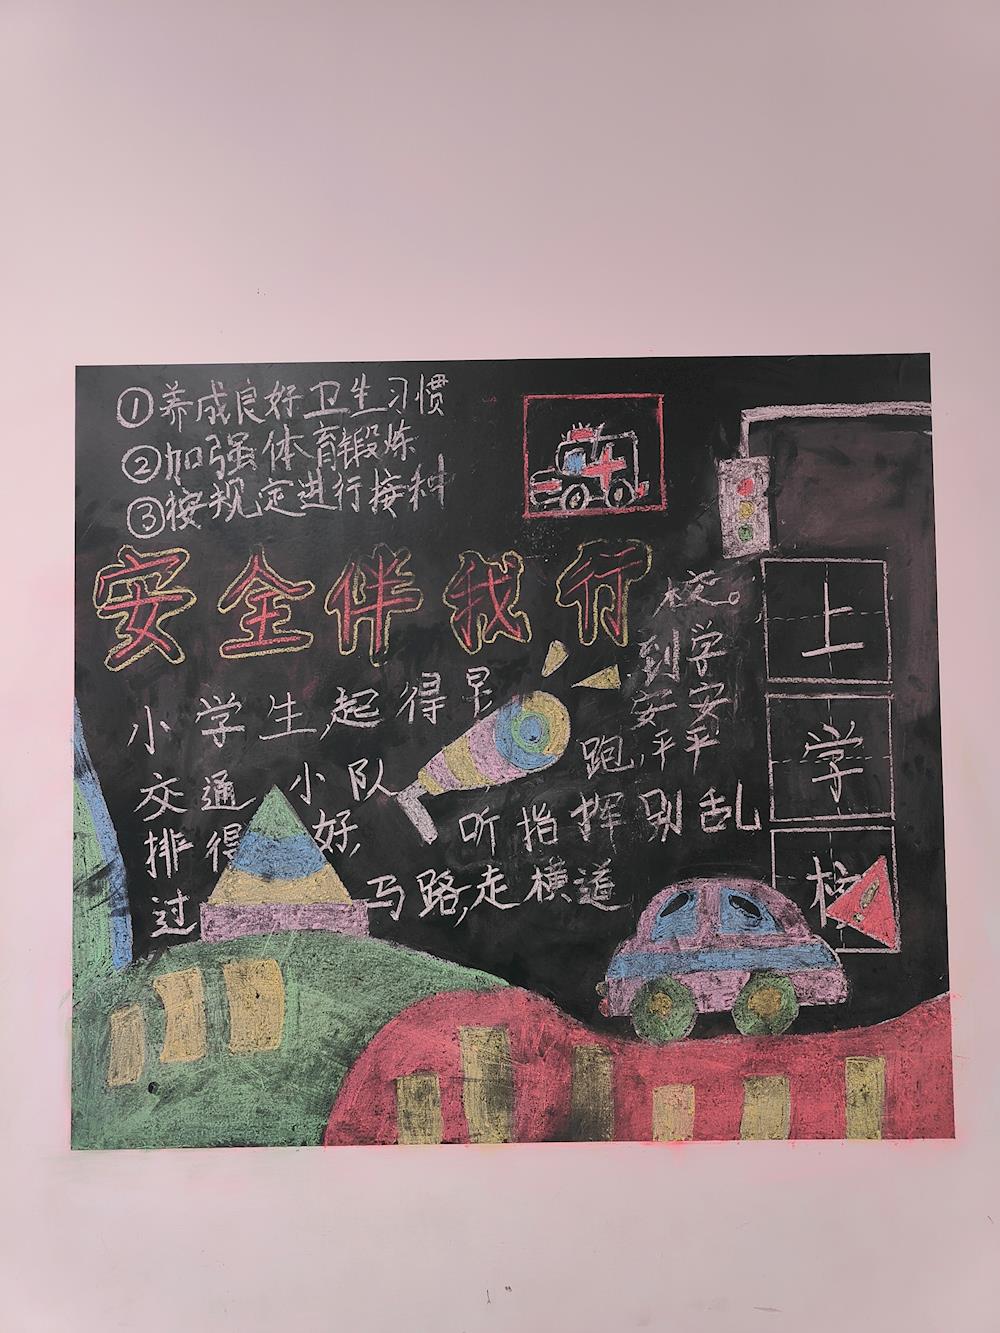 ①养成良好卫生习惯
②加强体育锻炼
③按规定进行接种
安全伴我行
小学生,起得早
交通小队
排得好,
听指挥别乱
跑,
过马路,走横道
安平安平
到学
校。
上
学
校